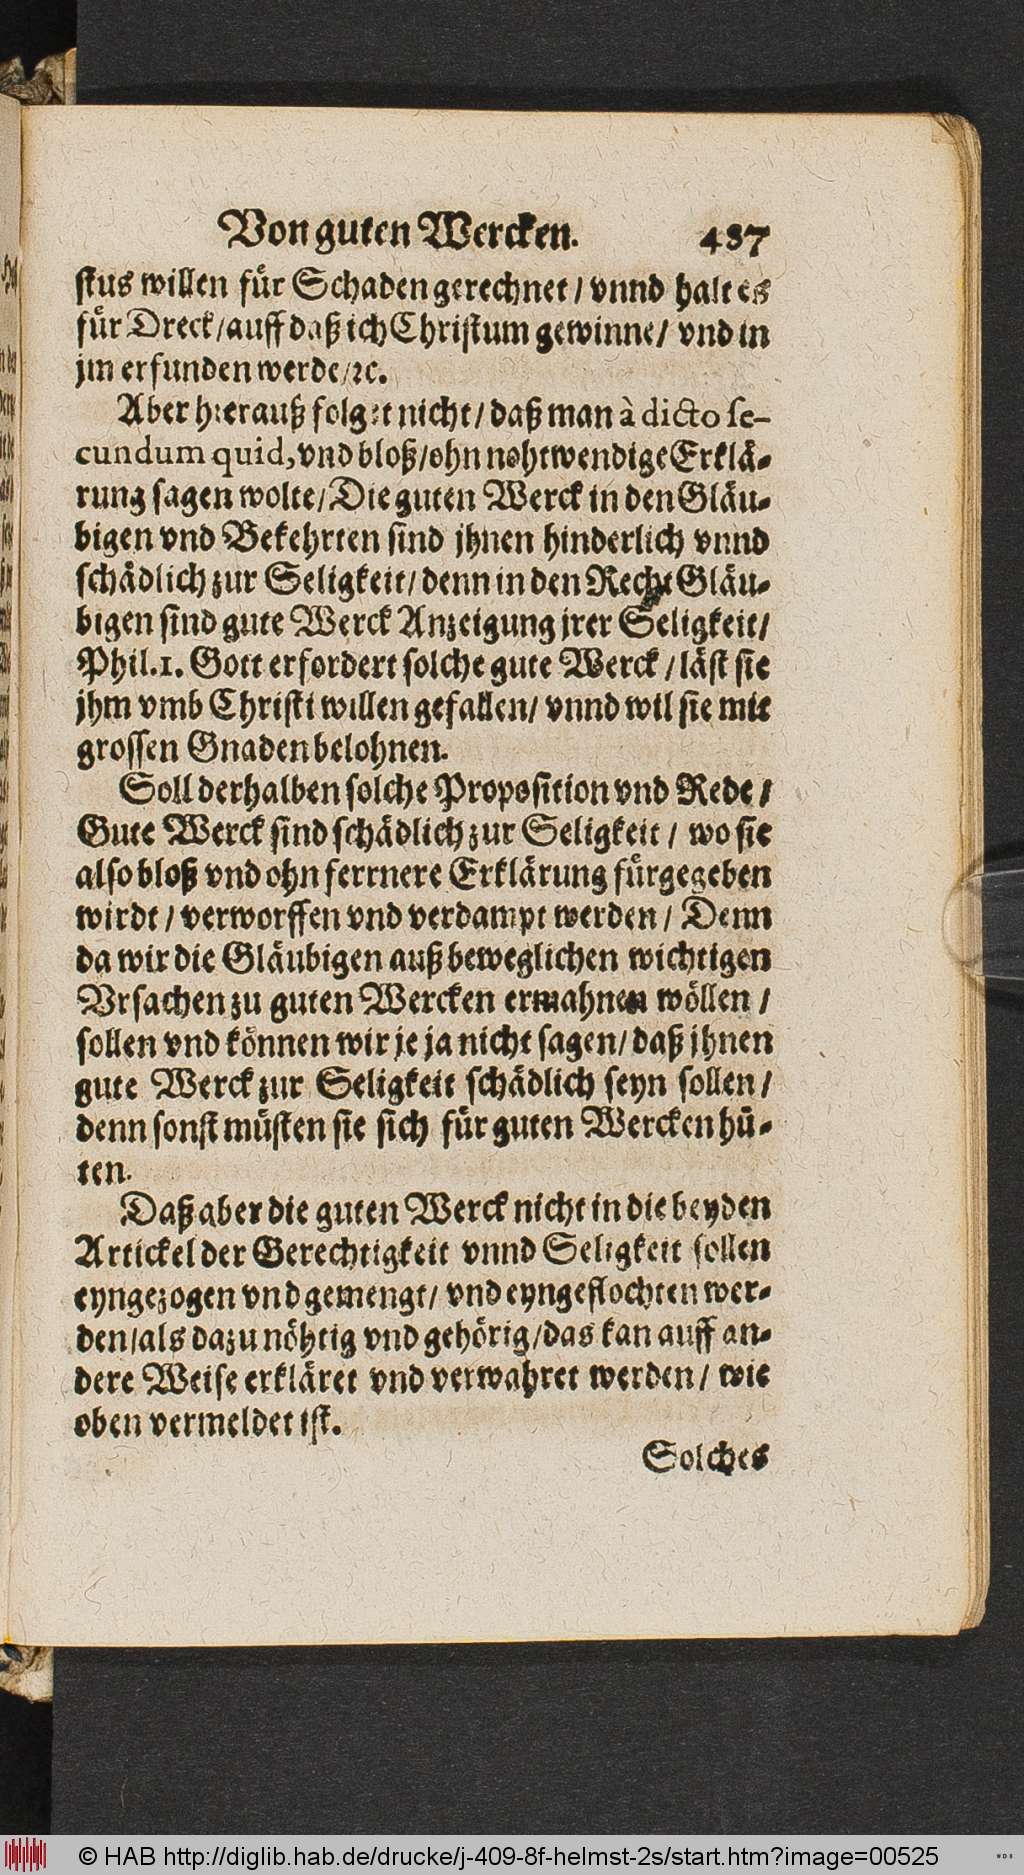 Von guten Wercken. 487
stus willen für Schaden gerechnet / vnnd halt es
für Dreck / auff daß ich Christum gewinne / vnd in
jm erfunden werde / ꝛc.
Aber hierauß folget nicht / daß man à dicto se-
cundum quid, vnd bloß / ohn nohtwendige Erklä-
rung sagen wolte / Die guten Werck in den Gläu-
bigen vnd Bekehrten sind jhnen hinderlich vnnd
schädlich zur Seligkeit / denn in den Recht Gläu-
bigen sind gute Werck Anzeigung jrer Seligkeit /
Phil. 1. Gott erfordert solche gute Werck / läst sie
jhm vmb Christi willen gefallen / vnnd wil sie mit
grossen Gnaden belohnen.
Soll derhalben solche Proposition vnd Rede /
Gute Werck sind schädlich zur Seligkeit / wo sie
also bloß vnd ohn ferrnere Erklärung fürgegeben
wirdt / verworffen vnd verdampt werden / Denn
da wir die Gläubigen auß beweglichen wichtigen
Vrsachen zu guten Wercken ermahnen wöllen /
sollen vnd können wir je ja nicht sagen / daß jhnen
gute Werck zur Seligkeit schädlich seyn sollen /
denn sonst müsten sie sich für guten Wercken hü-
ten.
Daß aber die guten Werck nicht in die beyden
Artickel der Gerechtigkeit vnnd Seligkeit sollen
eyngezogen vnd gemengt / vnd eyngeflochten wer-
den / als dazu nöhtig vnd gehörig / das kan auff an-
dere Weise erkläret vnd verwahret werden / wie
oben vermeldet ist.
Solches
© HAB http://diglib.hab.de/drucke/j-409-8f-helmst-2s/start.htm?image=00525